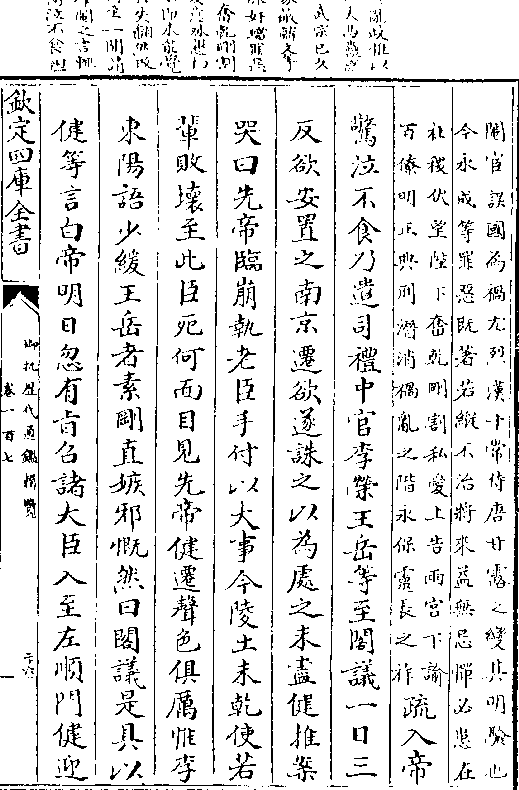 閹官誤國為禍尤烈漢十常侍唐甘露之變其明驗也
今永成等罪惡既著若縱不治將來益無忌憚必患在
社稷伏望陛下奮乾剛割私愛上告兩宮下諭
百僚明正典刑潛消禍亂之階永保靈長之祚疏入帝
驚泣不食乃遣司禮中官李榮王岳等至閣議一日三
反欲安置之南京遷欲遂誅之以為處之未盡健推案
哭曰先帝臨崩執老臣手付以大事今陵土未乾使若
輩敗壞至此臣死何面目見先帝健遷聲色俱厲惟李
東陽語少緩王岳者素剛直嫉邪慨然曰閣議是具以
健等言白帝明日忽有㫖召諸大臣入至左順門健迎
欽定四庫全書
御批歴代通鑑輯覽
卷一百七
二十六